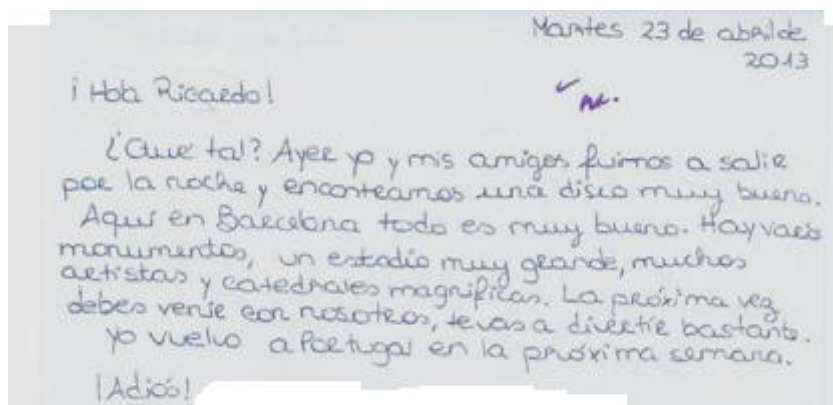 Martes 23 de abril de
2013
¡Hola Ricardo!
¿Qué tal? Ayer yo y mis amigos fuimos a salir
por la noche y encontramos una disco muy bueno.
Aquí en Barcelona todo es muy bueno. Hay varios
monumentos, un estadio muy grande, muchos
artistas y catedrales magníficas. La próxima vez
debes venir con nosotros, te vas a divertir bastante.
Yo vuelvo a Portugal en la próxima semana.
¡Adiós!